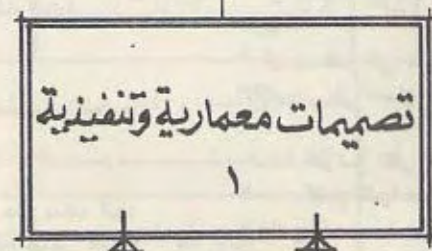 تصميمات معمارية وتنفيذية
١